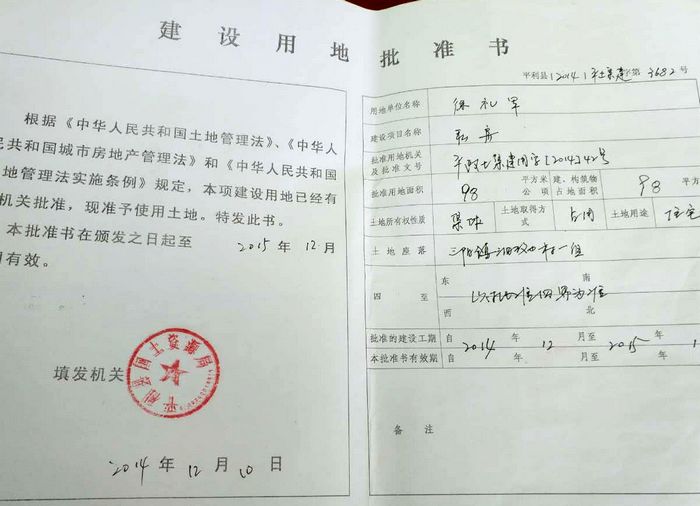 建设用地批准书
根据《中华人民共和国土地管理法》、《中华人
民共和国城市房地产管理法》和《中华人民共和国
地管理法实施条例》规定，本项建设用地已经有
机关批准，现准予使用土地。特发此书。
本批准书在颁发之日起至 2015 年 12 月
有效。
平利县国土资源局
填发机关
2014 年 12 月 10 日
平利县（2014）平土集建字第 3682 号
用地单位名称 徐礼军
建设项目名称
批准用地机关及批准文号 平政土集建用字[2014]42号
批准用地面积 98 平方米 公顷 建、构筑物占地面积 98 平方
土地所有权性质 集体 土地取得方式 占用 土地用途 住宅
土地座落 三阳镇 村一组
四至 东 南 西 北 以 四界为准
批准的建设工期 自 2014 年 12 月至 2015 年 1
本批准书有效期 自 年 月至 年
备注